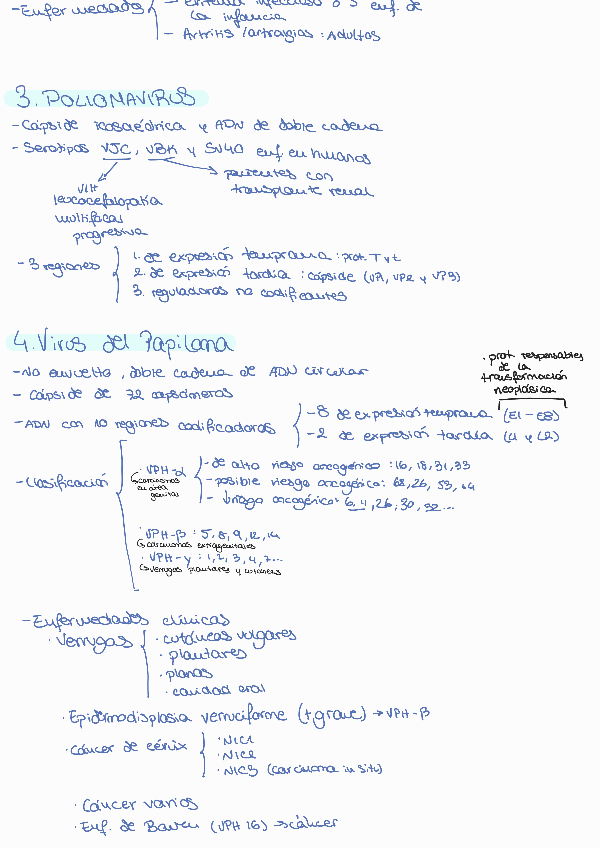 -Enfermedades - eritema infeccioso o 5 enf. de
la infancia
- Artritis /artralgias : Adultos
3. POLIOMAVIRUS
-Cápside icosaédrica y ADN de doble cadena
-Serotipos VJC, VBK y SV40 enf en humanos
VIH
leucocefalopatia
multifocal
progresiva
pacientes con
transplante renal
-3 regiones
1. de expresión temprana : prot. T y t
2. de expresión tardía : cápside (VP1, VP2 y VP3)
3. reguladoras no codificantes
4. Virus del Papiloma
-No envuelto, doble cadena de ADN circular
- Cápside de 72 capsómeros
-ADN con 10 regiones codificadoras
-8 de expresión temprana (E1-E8)
-2 de expresión tardía (L1 y L2)
· prot. responsables
de la
transformación
neoplásica
-Clasificación
· VPH-α
↳carcinomas
en área
genital
-de alto riesgo oncogénico : 16, 18, 31, 33
-posible riesgo oncogénico: 68, 26, 53, 64
- ↓riesgo oncogénico: 6, 4, 26, 30, 32...
· VPH-β : 5, 8, 9, 12, 14
↳carcinomas extragenitales
· VPH-γ : 1, 2, 3, 4, 7...
↳verrugas plantares y cutáneas
-Enfermedades clínicas
· Verrugas
· cutáneas vulgares
· plantares
· planas
· cavidad oral
· Epidermodisplasia verruciforme (+grave) → VPH-β
· Cáncer de cérvix
· NIC1
· NIC2
· NIC3 (carcinoma in situ)
· Cáncer varios
· Enf. de Bowen (VPH 16) → cáncer